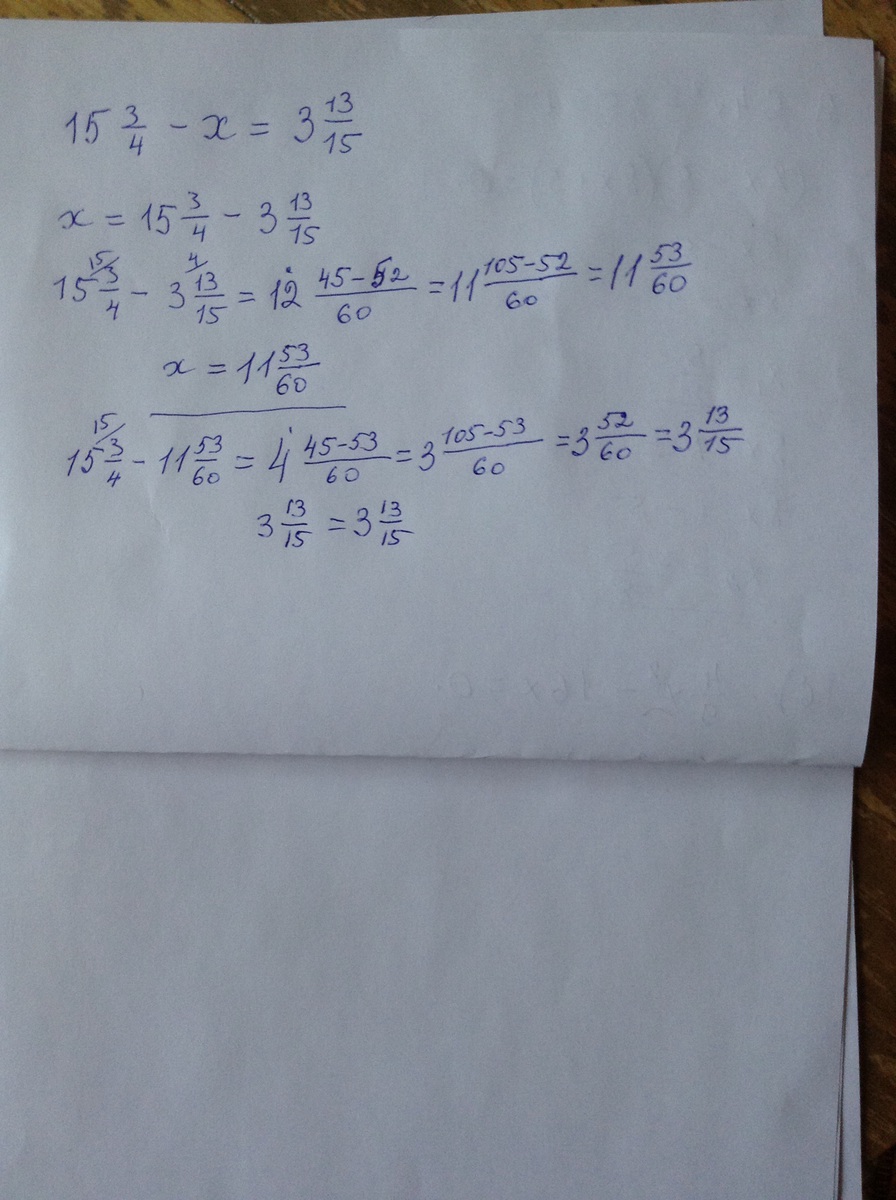 15 3/4 − x = 3 13/15
x = 15 3/4 − 3 13/15
15 3/4 ^15/ − 3 13/15 ^4/ = 12 (45−52)/60 = 11 (105−52)/60 = 11 53/60
x = 11 53/60
15 3/4 ^15/ − 11 53/60 = 4 (45−53)/60 = 3 (105−53)/60 = 3 52/60 = 3 13/15
3 13/15 = 3 13/15